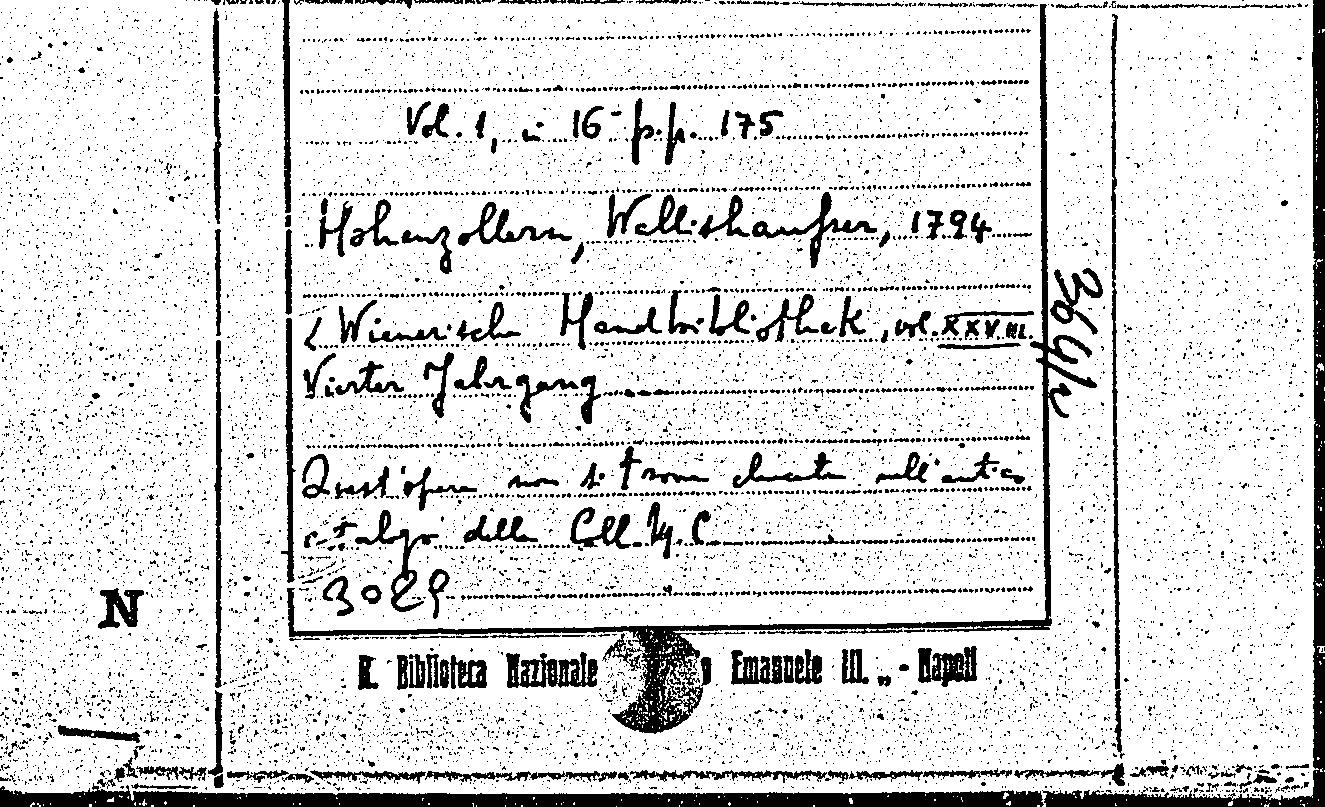 Vol. 1, in 16° pp. 175
Hohenzollern, Wallishausser, 1794
Wienerische Handbibliothek, vol. XXVIII.
Vierter Jahrgang
Quest'opera non si trova elencata nell'antico
catalogo della Coll.
3029
N
R. Biblioteca Nazionale Emanuele III. „ - Napoli